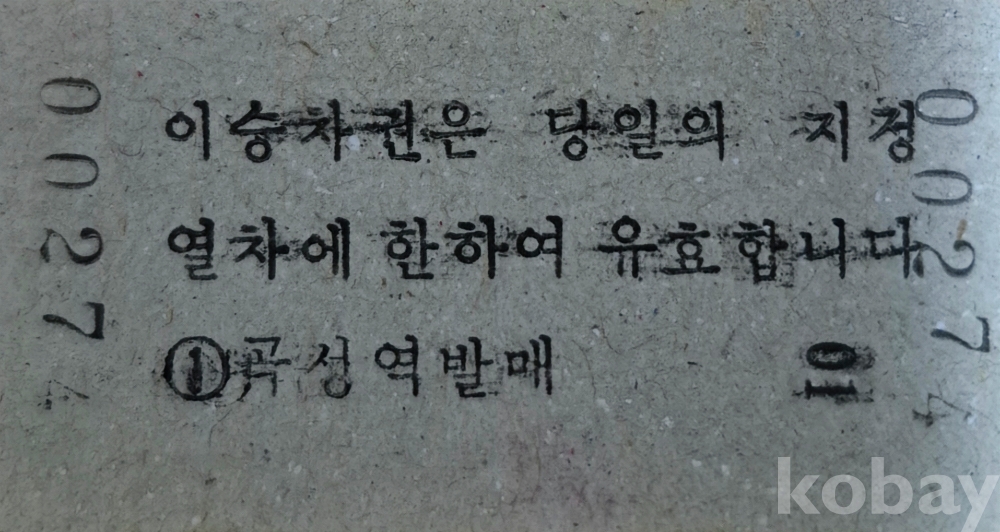 00274
이승차권은 당일의 지정
열차에 한하여 유효합니다
①곡성역발매
01
00274
kobay